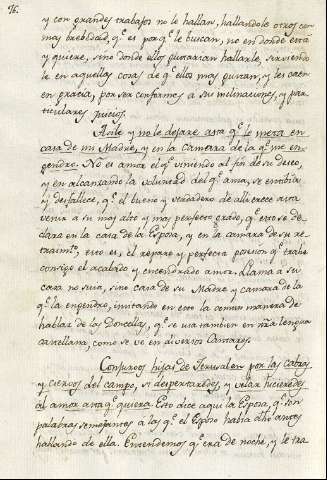 76.
y con grandes trabajos no le hallan, hallandole otros con
mas brebedad, q.e es por q.e le buscan, no en donde está
y quiere, sino donde ellos gustarian hallarle, sirviendo
le en aquellas cosas de q.e ellos mas gustan, y les caen
en gracia, por ser conformes a sus inclinaciones, y par
ticulares juicios.
Asile y no le dejare asta q.e le meta en
casa de mi Madre, y en la camara de la q.e me en
gendro. No es amor el q.e viniendo al fin de su deseo,
y en alcanzando la voluntad del q.e ama, se entibia
y desfallece, q.e el bueno y verdadero de alli crece asta
venir a su mas alto y mas perfecto grado, q.e esto se de
clara en la casa de la Esposa, y en la camara de su re
traim.to, esto es, el reparo y perfecta posesion q.e trahe
consigo el acabado y encendrado amor. Llama a su
casa no suia, sino casa de su Madre y camara de la
q.e la engendro, imitando en esto la comun manera de
hablar de las Doncellas, q.e se usa tambien en ñra lengua
castellana, como se ve en diversos Cantares.
Conjuroos hijas de Jerusalen por las cabras
y ciervos del campo, si despertaredes, y velar hicieredes
al amor asta q.e quiera. Esto dice aqui la Esposa, q.e son
palabras semejantes à las q.e el Esposo habia dho antes
hablando de ella. Entendemos q.e era de noche, y le tra